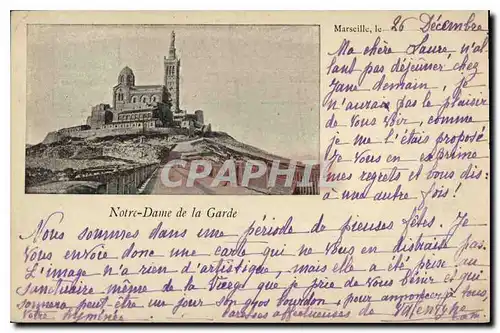 Marseille, le 26 Décembre
Ma chère Laure n'al
lant pas déjeuner chez
Jane demain, je
n'aurai pas le plaisir
de Vous voir, comme
je me l'étais proposé
Je Vous en exprime
mes regrets et Vous dis:
à une autre fois!
CPARAMA
Notre-Dame de la Garde
Nous sommes dans une période de pieuses fêtes. Je
Vous envoie donc une carte qui ne Vous en distrait pas.
L'image n'a rien d'artistique, mais elle a été prise au
Sanctuaire même de la Vierge que je prie de Vous bénir et qui
sonnera peut être un jour son gros bourdon, pour annoncer à tous,
Votre
affectueuses de